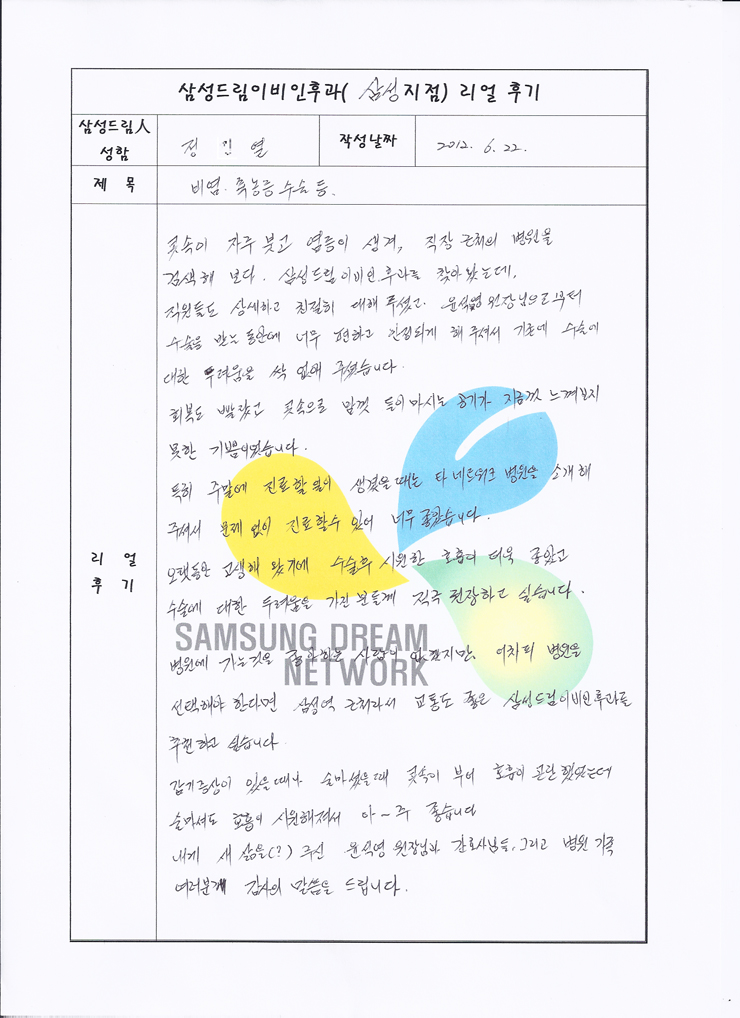 삼성드림이비인후과( 삼성지점) 리얼 후기
삼성드림人 성함
정 진 열
작성날짜
2012. 6. 22.
제 목
비염. 축농증 수술 등.
리 얼 후 기
콧속이 자주 붓고 염증이 생겨, 직장 근처의 병원을
검색해 보다. 삼성드림이비인후과를 찾아 왔는데,
직원들도 상세하고 친절히 대해 주셨고. 윤석영 원장님으로부터
수술을 받는 동안에 너무 편하고 안심되게 해 주셔서 기존에 수술에
대한 두려움을 싹 없애 주셨습니다.
회복도 빨랐고 콧속으로 맘껏 들이마시는 공기가 지금껏 느껴보지
못한 기쁨이었습니다.
특히 주말에 진료할 일이 생겼을 때는 타 네트워크 병원을 소개해
주셔서 문제 없이 진료할수 있어 너무 좋았습니다.
오랫동안 고생해 왔기에 수술후 시원한 호흡이 더욱 좋았고
수술에 대한 두려움을 가진 분들께 적극 권장하고 싶습니다.
SAMSUNG DREAM
NETWORK
병원에 가는것을 좋아하는 사람이 없겠지만, 어차피 병원을
선택해야 한다면 삼성역 근처라서 교통도 좋은 삼성드림이비인후과를
추천하고 싶습니다.
감기증상이 있을때나 술마셨을때 콧속이 부어 호흡이 곤란했었는데
술마셔도 호흡이 시원해져서 아~주 좋습니다
내게 새 삶을(?) 주신 윤석영 원장님과 간호사님들, 그리고 병원 가족
여러분께 감사의 말씀을 드립니다.